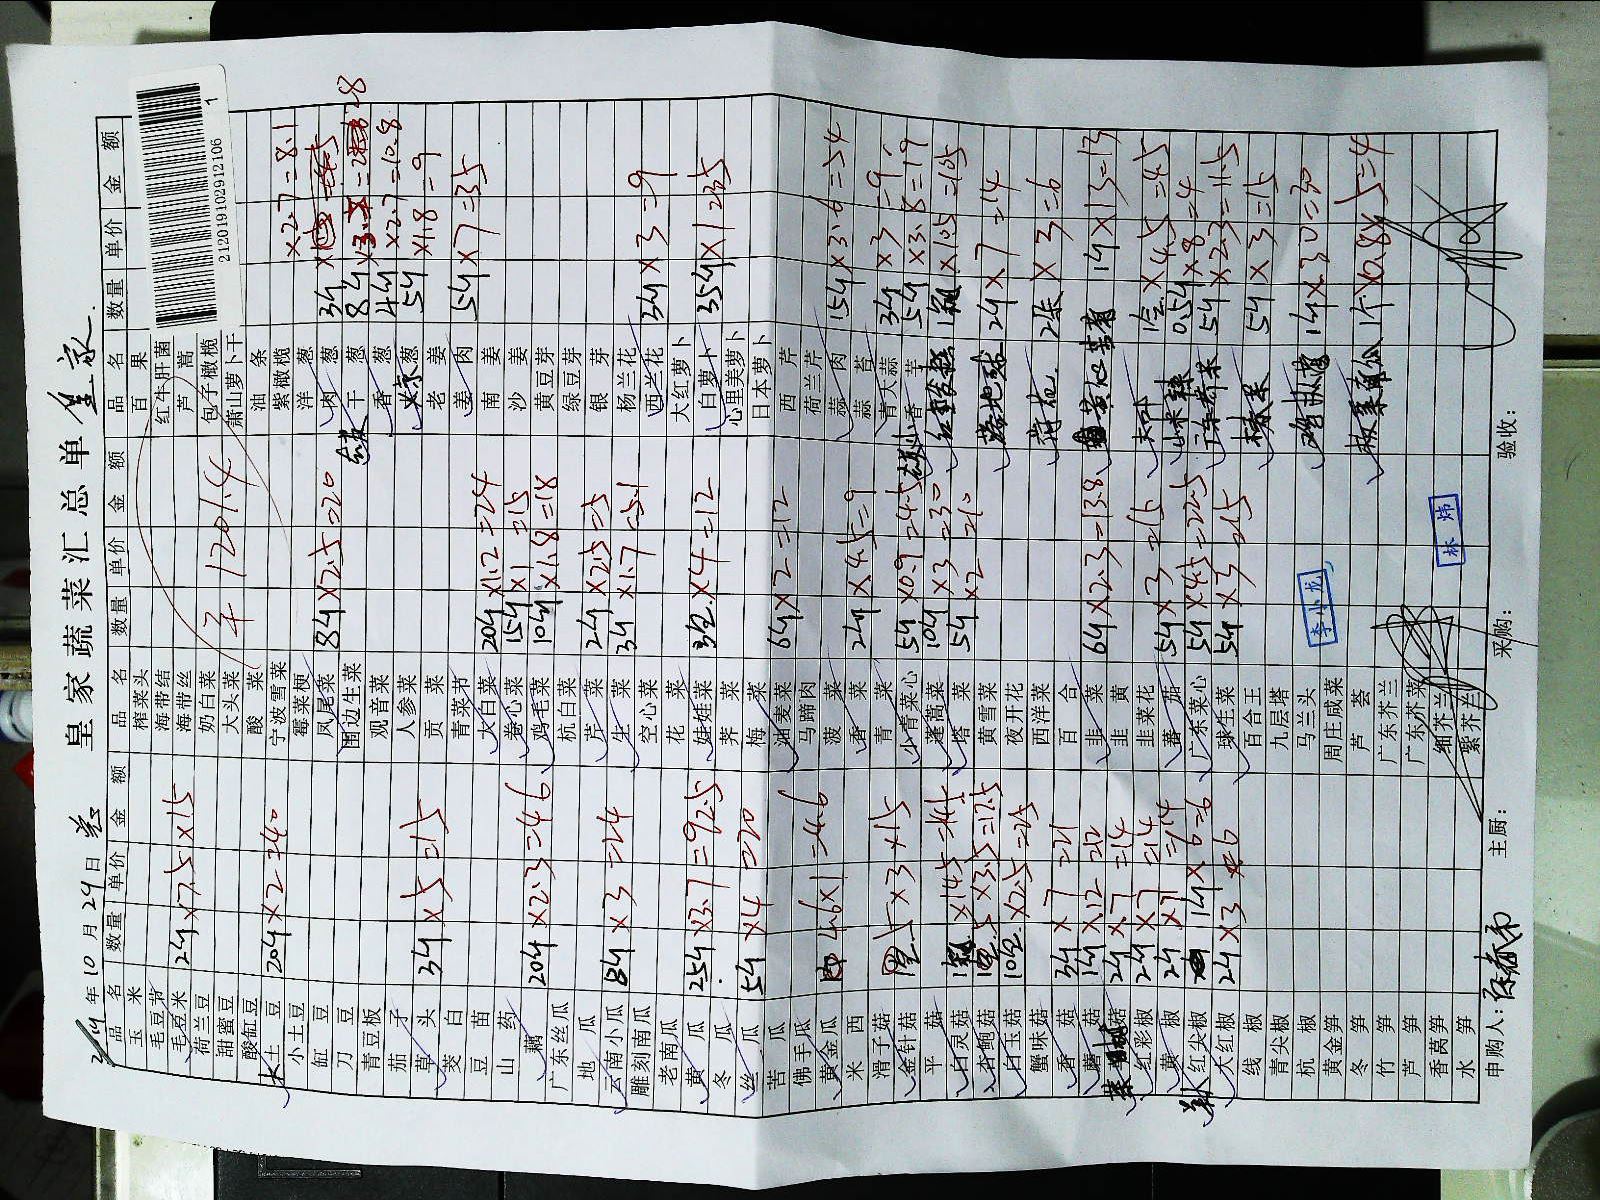 皇家蔬菜汇总单
2019年10月29日
品名 数量 单价 金额
玉米
毛豆节
毛豆米 2斤×7.5×15
荷兰豆
甜蜜豆
酸缸豆
大土豆 20斤×2=40
小土豆
缸豆
刀豆
青豆板
茄子
草头 3斤×5=15
茭白
豆苗
山药
藕 20斤×2.3=46
广东丝瓜
地瓜
云南小瓜 8斤×3=24
雕刻南瓜
老南瓜
黄瓜 25斤×3.7=92.5
冬瓜
丝瓜 5斤×4=20
苦瓜
佛手瓜
黄金瓜 4.6×1=4.6
米西
滑子菇
金针菇 5×3×15
平菇
白灵菇 ×14.5=14.5
杏鲍菇 5×3.5=17.5
白玉菇 10包×2.5=25
蟹味菇
香菇 3斤×7=21
蘑菇 1斤×12=12
菇 2斤×7=14
红彩椒 2斤×7=14
黄椒 2斤×7=14
红尖椒 1斤×6=6
大红椒 2斤×3=6
线椒
青尖椒
杭椒
黄金笋
冬笋
竹笋
芦笋
香莴笋
水笋
品名 数量 单价 金额
榨菜头
海带结
海带丝
奶白菜
大头菜
酸菜
宁波雪菜
霉菜梗
凤尾菜 8斤×2.5=20
围边生菜
观音菜
人参菜
贡菜
青菜节
大白菜 20斤×1.2=24
卷心菜 15斤×1=15
鸡毛菜 10斤×1.8=18
杭白菜
芹菜 2斤×2.5=5
生菜 3斤×1.7=5.1
空心菜
花菜
娃娃菜 3包×4=12
荠菜
梅菜
油麦菜 6斤×2=12
马蹄肉
菠菜
香菜 2斤×4.5=9
青菜
小青菜心 5斤×0.9=4.5
蓬蒿菜 10斤×3=30
塔菜 5斤×2=10
黄雪菜
夜开花
西洋菜
百合
韭菜 6斤×2.3=13.8
韭黄
韭菜花
番茄 5斤×3=15
广东菜心 5斤×4.5=22.5
球生菜 5斤×3=15
百合王
九层塔
马兰头
周庄咸菜
芦荟
广东芥兰
广东芥菜
细芥兰
紫芥兰
1201.4
品名 数量 单价 金额
百果
红牛肝菌
芦蒿
包子橄榄
萧山萝卜干
油条
紫橄榄
洋葱 ×2.7=8.1
肉葱 3斤
干葱 8斤×3.5=28
香葱 4斤×2.7=10.8
京葱 5斤×1.8=9
老姜
姜肉 5斤×7=35
南姜
沙姜
黄豆芽
绿豆芽
银芽
杨兰花
西兰花 3斤×3=9
大红萝卜
白萝卜 35斤×1
心里美萝卜
日本萝卜
西芹
荷兰芹
蒜肉 15斤×3.6=54
蒜苔
青大蒜 3斤×3=9
小香芋 5斤×3.8=19
×10.5=10.5
2斤×7=14
2朵×3=6
黄 1斤×13=13
×4.5=4.5
0.5斤×8=4
5斤×2.3=11.5
5斤×3=15
1斤×30=30
1个×0.8×5=4
2120191029121061
李小龙
林炜
申购人：
主厨：
采购：
验收：